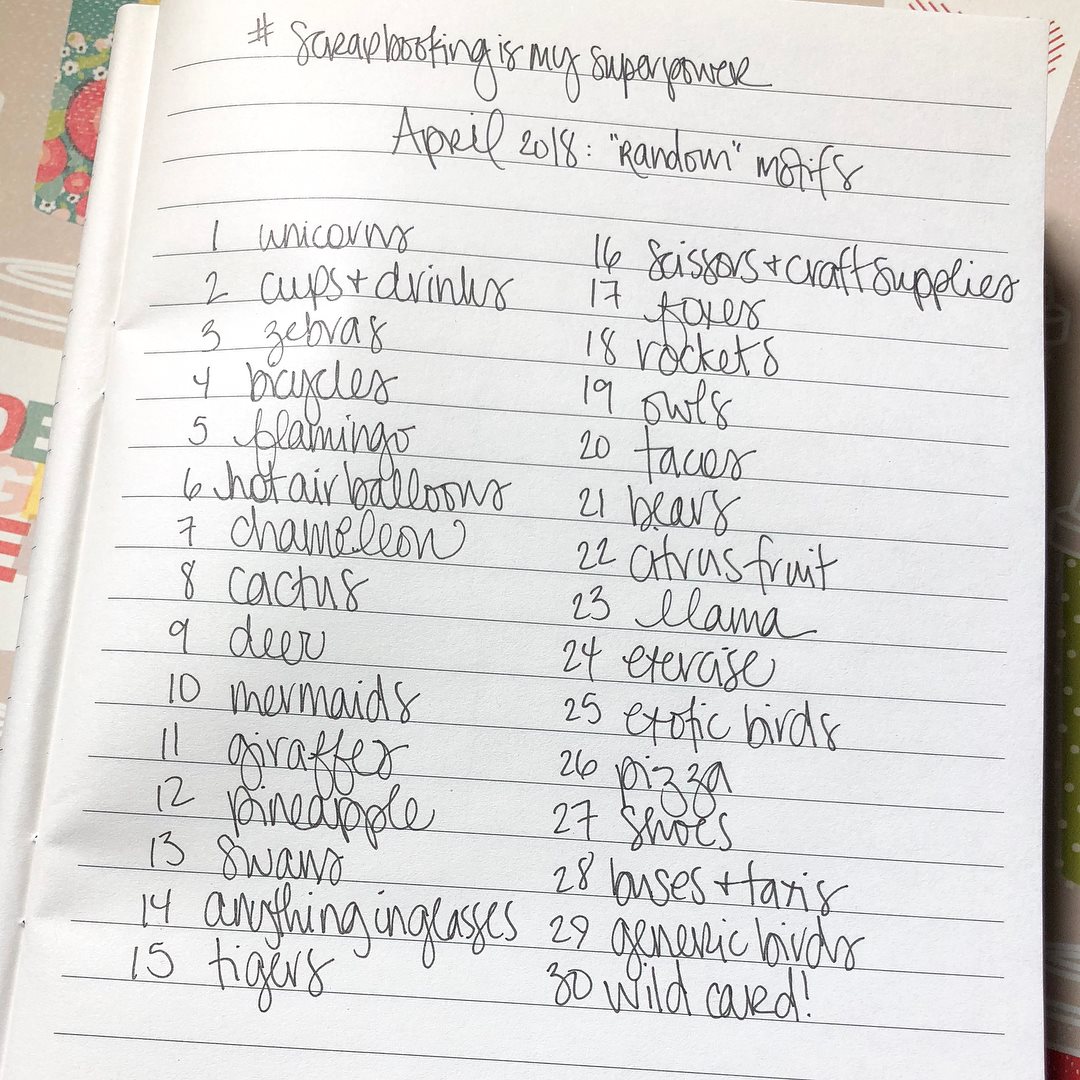 # Scrapbooking is my superpower
April 2018: "Random" motifs
1 unicorns
2 cups + drinks
3 zebras
4 bicycles
5 flamingo
6 hot air balloons
7 chameleon
8 cactus
9 deer
10 mermaids
11 giraffes
12 pineapple
13 swans
14 anything in glasses
15 tigers
16 scissors + craft supplies
17 foxes
18 rockets
19 owls
20 tacos
21 bears
22 citrus fruit
23 llama
24 exercise
25 exotic birds
26 pizza
27 shoes
28 buses + taxis
29 generic birds
30 wild card!